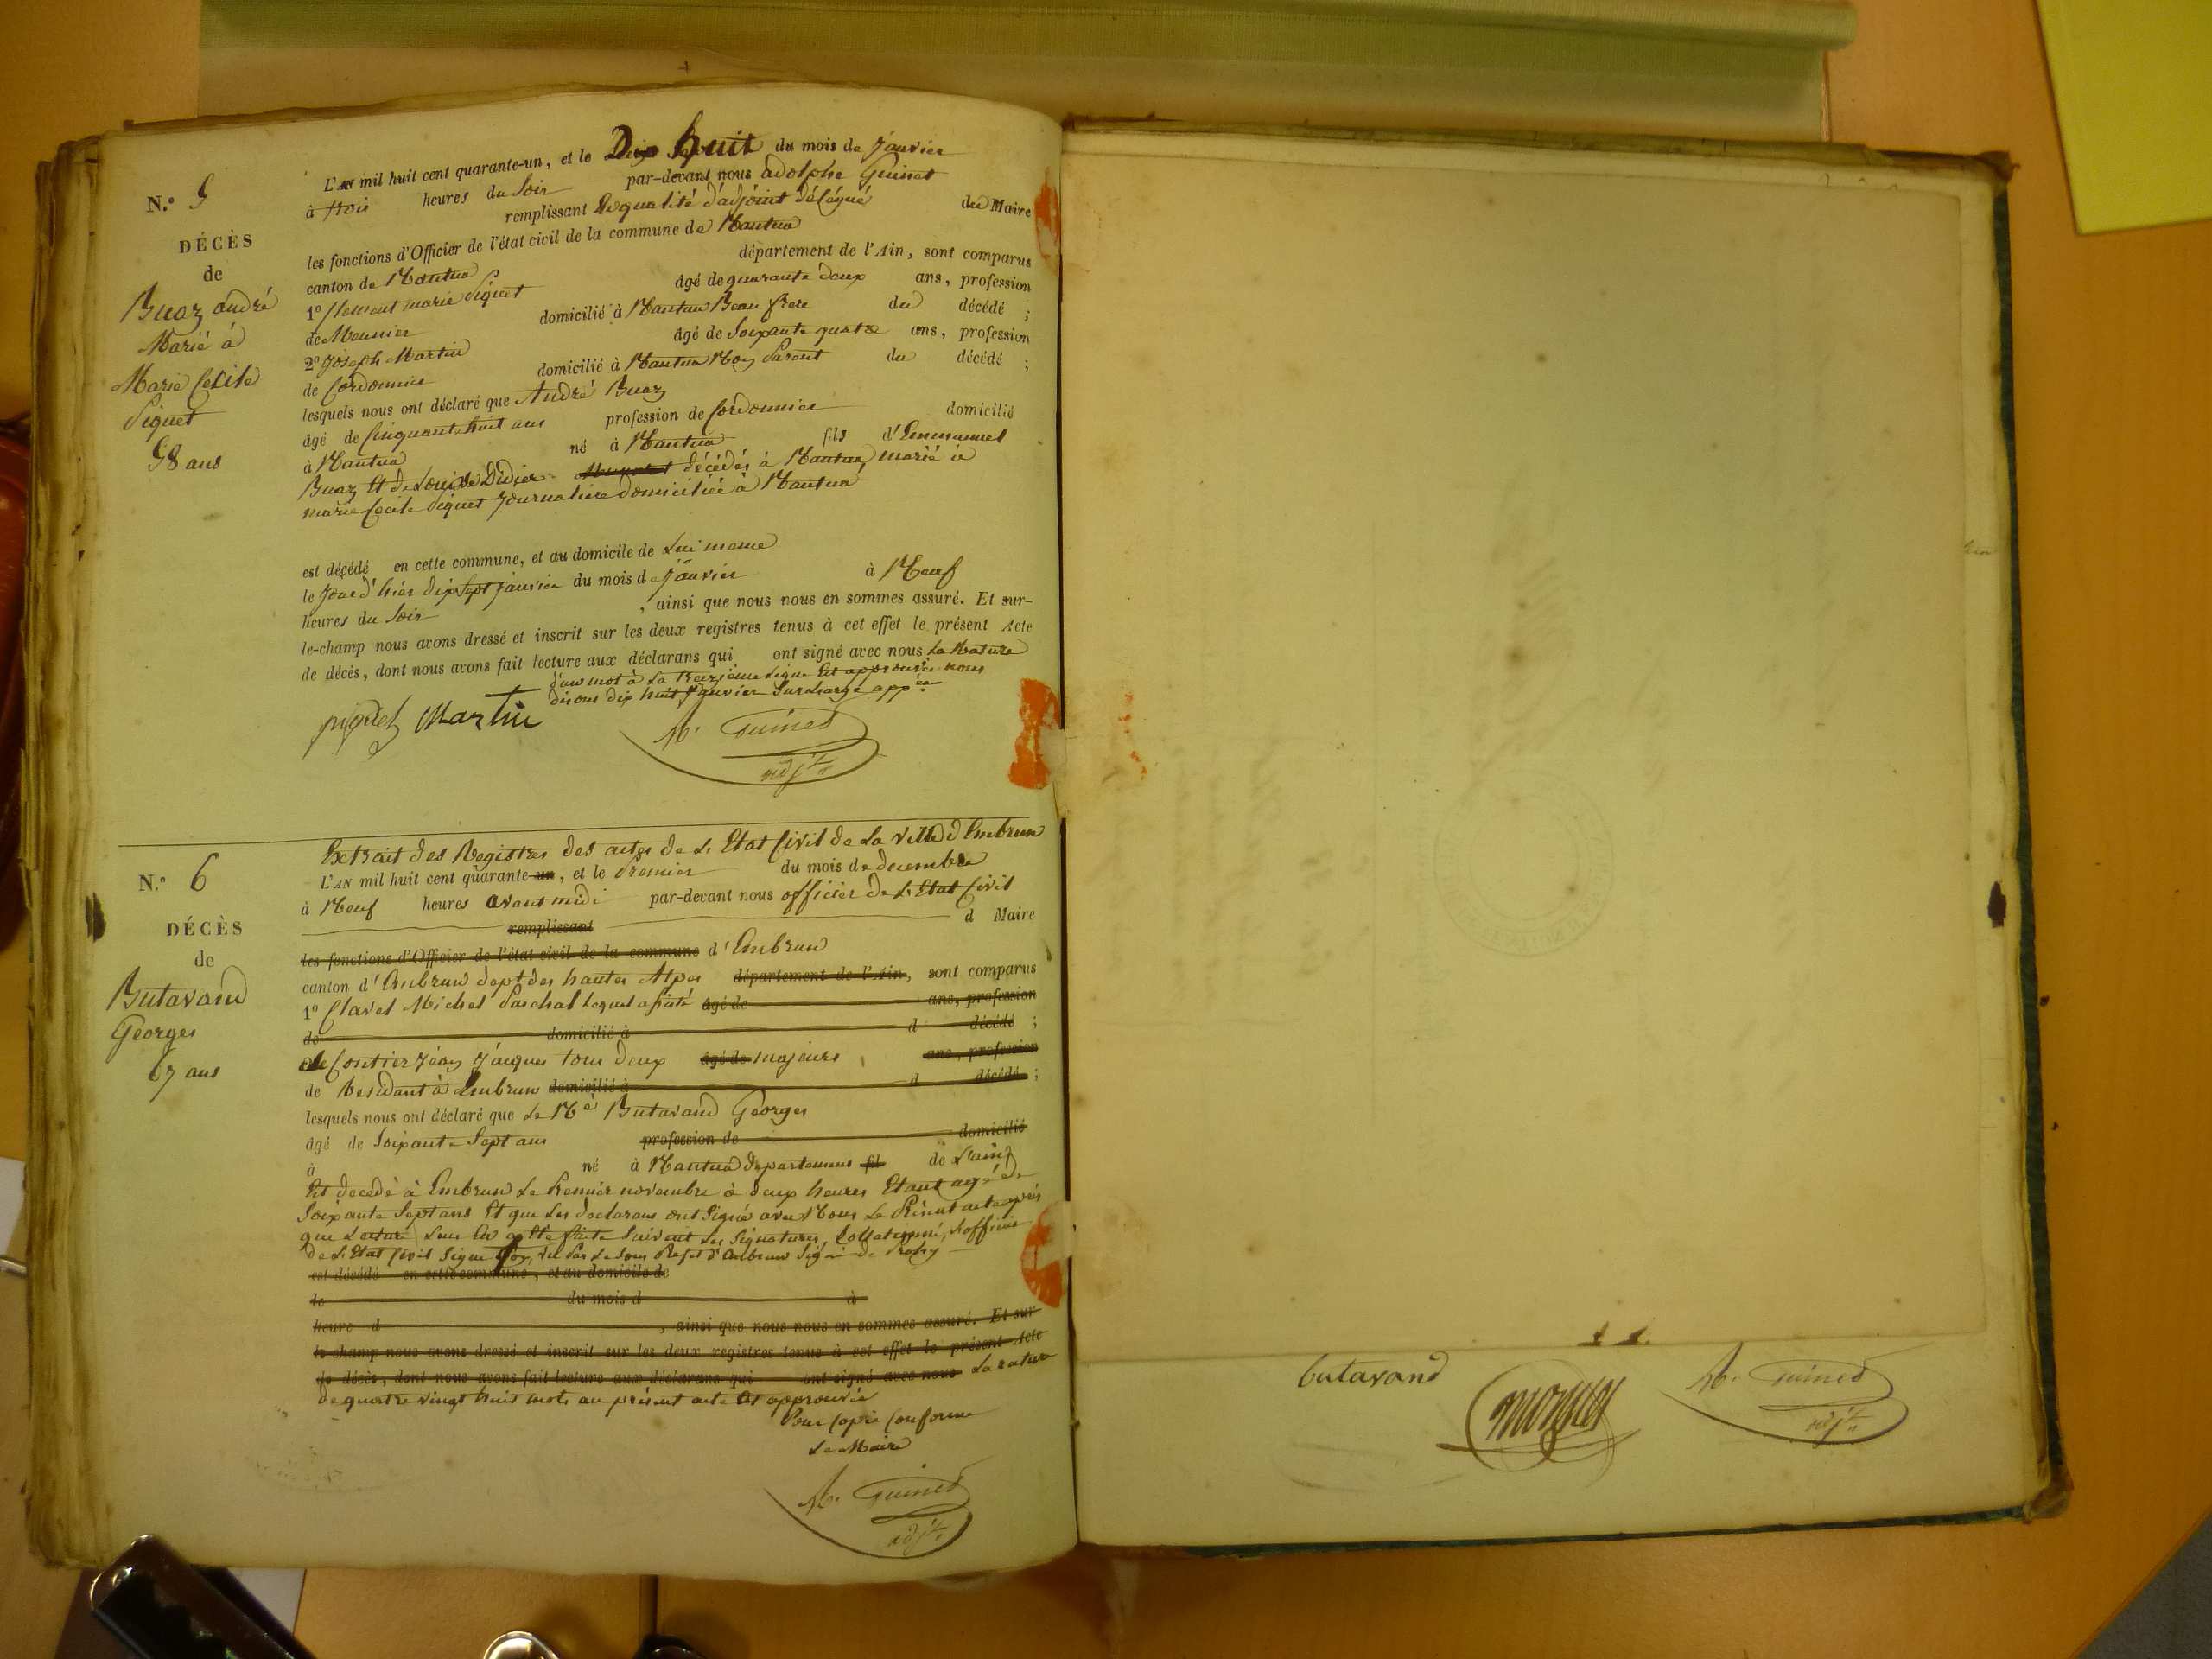 N.o 5
DÉCÈS
de
Buaz andré
Marié à
Marie Cécile
Piquet
58 ans
L'AN mil huit cent quarante-un, et le Dix huit du mois de Janvier
à trois heures du Soir par-devant nous adolphe Guinet
remplissant En qualité d'adjoint délégué du Maire
les fonctions d'Officier de l'état civil de la commune de Nantua
canton de Nantua département de l'Ain, sont comparus
1o Clement marie Piquet âgé de quarante deux ans, profession
de Meunier domicilié à Nantua Beau frere du décédé ;
2o Joseph Martin âgé de Soixante quatre ans, profession
de Cordonnier domicilié à Nantua Non Parent du décédé ;
lesquels nous ont déclaré que André Buaz
âgé de Cinquante huit ans profession de Cordonnier domicilié
à Nantua né à Nantua fils d'Emmanuel
Buaz Et de Louise Didier décédés à Nantua, marié à
marie Cecile Piquet Journaliere domiciliée à Nantua
est décédé en cette commune, et au domicile de Lui meme
le Jour d'hier dix Sept janvier du mois de Janvier à Neuf
heures du Soir , ainsi que nous nous en sommes assuré. Et sur-
le-champ nous avons dressé et inscrit sur les deux registres tenus à cet effet le présent Acte
de décès, dont nous avons fait lecture aux déclarans qui ont signé avec nous La Rature
d'un mot à La treizieme Ligne Est approuvée nous
disons dix huit Janvier Surcharge appée
piquet Martin
A. Guinet
adjt
N.o 6
DÉCÈS
de
Butavand
Georges
67 ans
Extrait des Registres des actes de L'Etat Civil de La Ville d'Embrun
L'AN mil huit cent quarante-un, et le Premier du mois de decembre
à Neuf heures avant midi par-devant nous officier de L'Etat Civil
remplissant d Maire
les fonctions d'Officier de l'état civil de la commune d'Embrun
canton d'Embrun dept des hautes Alpes département de l'Ain, sont comparus
1o Clavel Michel Paschal âgé de ans, profession
de domicilié à d décédé ;
Contier Jean Jacques tous deux âgé de majeurs ans, profession
de Residant à Embrun domicilié à d décédé ;
lesquels nous ont déclaré que Le Né Butavand Georges
âgé de Soixante Sept ans profession de domicilié
à né à Nantua departement fil de L'ain
Est decedé à Embrun Le Premier novembre à deux heures Etant agé de
Soixante Sept ans Et que Les declarans ont Signé avec Nous Le Présent acte après
que Lecture Leur En a été faite Suivent Les Signatures, Collationné, L'officier
de L'Etat Civil Signé vu Par Le Sous Prefet d'Embrun Signé
est décédé en cette commune, et au domicile de
le du mois d à
heure d , ainsi que nous nous en sommes assuré. Et sur
le-champ nous avons dressé et inscrit sur les deux registres tenus à cet effet le présent Acte
de décès, dont nous avons fait lecture aux déclarans qui ont signé avec nous La rature
de quatre vingt huit mots au présent acte Est approuvée
Pour Copie Conforme
Le Maire
A. Guinet
adjt
butavand
A. Guinet
adjt